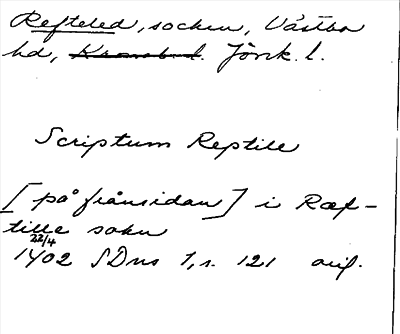 Refteled, socken, Västbo
hd, Kronob. l. Jönk. l.
Scriptum Reptile
[på frånsidan] i Ræf-
tille sokn
22/4
1402 SDns 1, s. 121 orig.